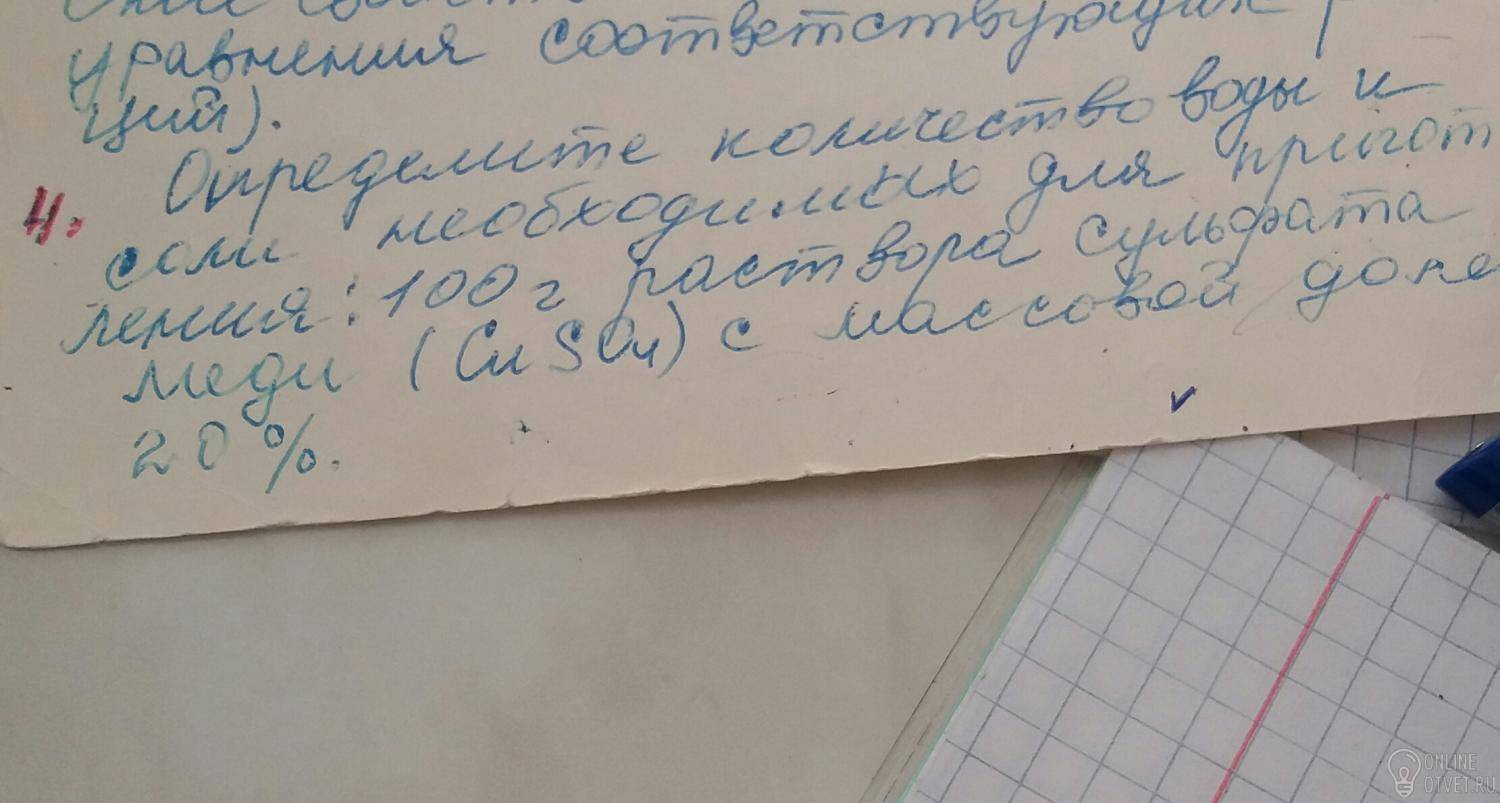 уравнения соответствующих
ций).
4. Определите количество воды и
соли необходимых для пригот
ления: 100 г раствора сульфата
меди (CuSO4) с массовой долей
20%.
ONLINE
OTVET.RU